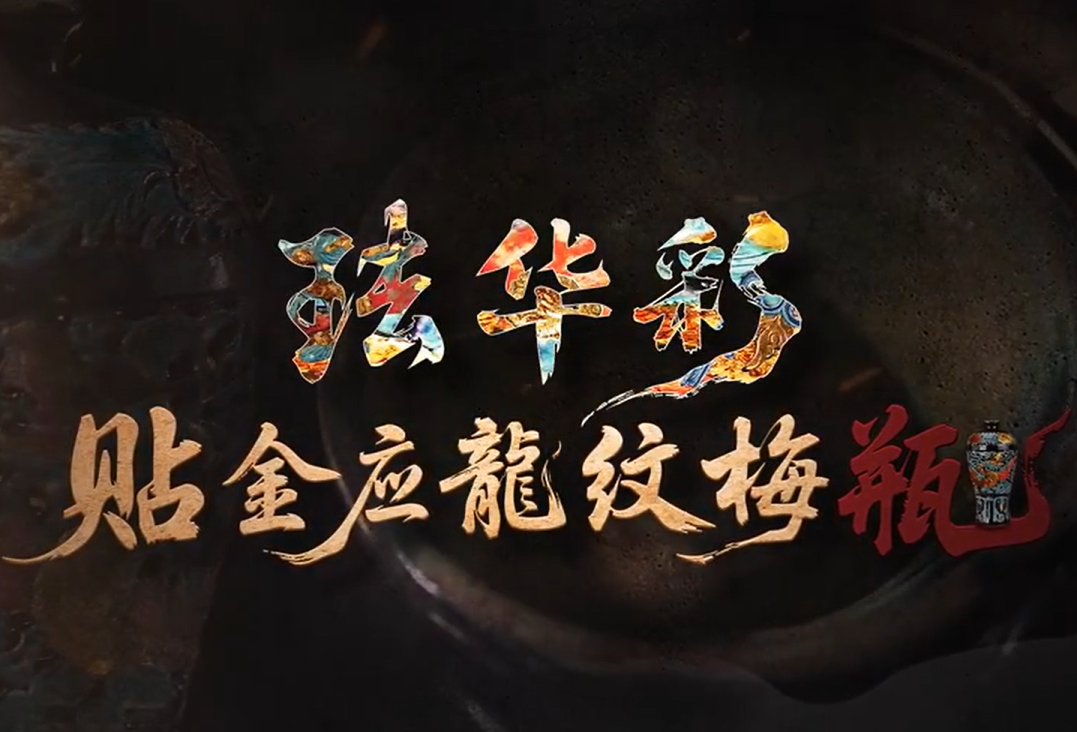 珐华彩
贴金应龍纹梅瓶